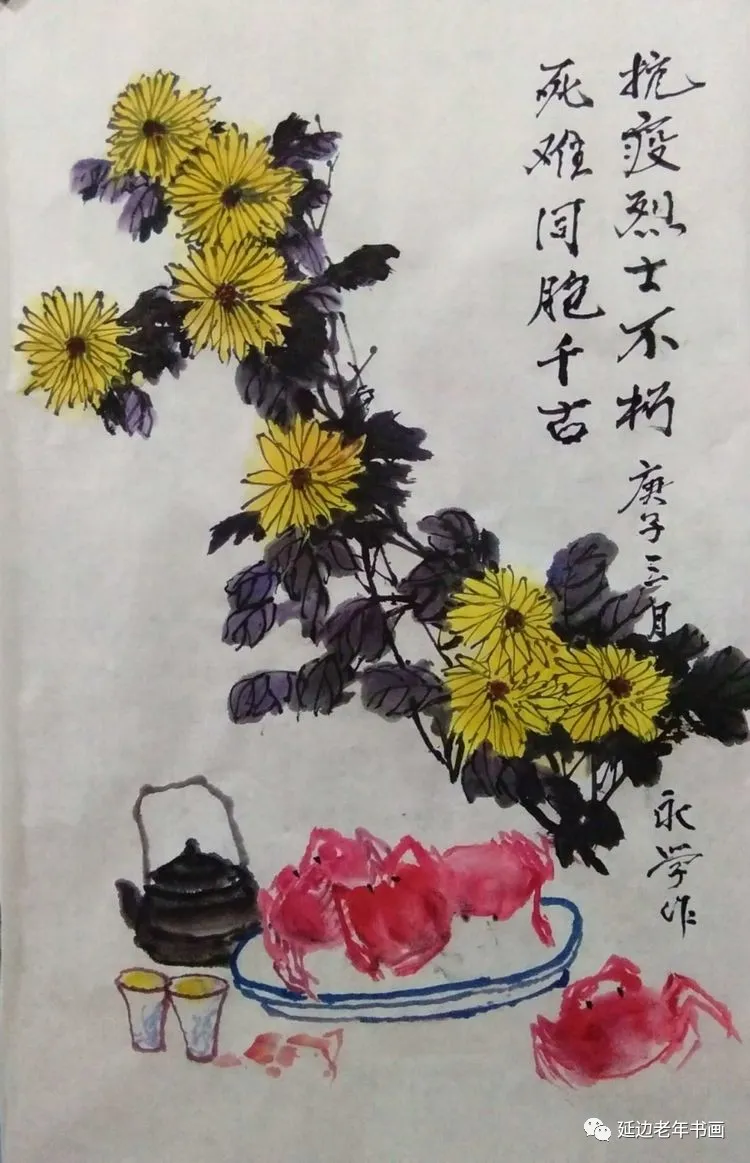 抗疫烈士不朽
死难同胞千古
庚子三月
永学作
延边老年书画